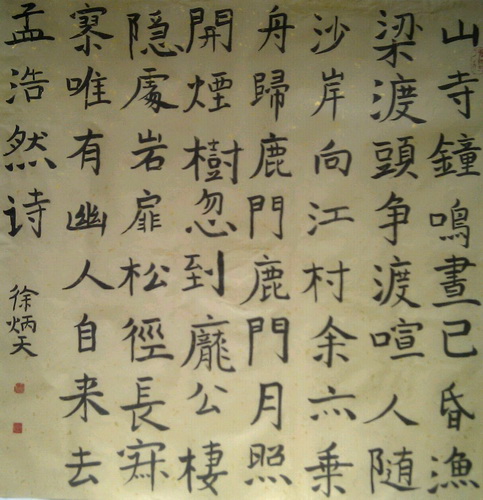 山寺鐘鳴晝已昏漁
梁渡頭争渡喧人随
沙岸向江村余亦乗
舟歸鹿門鹿門月照
開煙樹忽到龐公棲
隱處岩扉松徑長寂
寥唯有幽人自来去
孟浩然诗
徐炳天